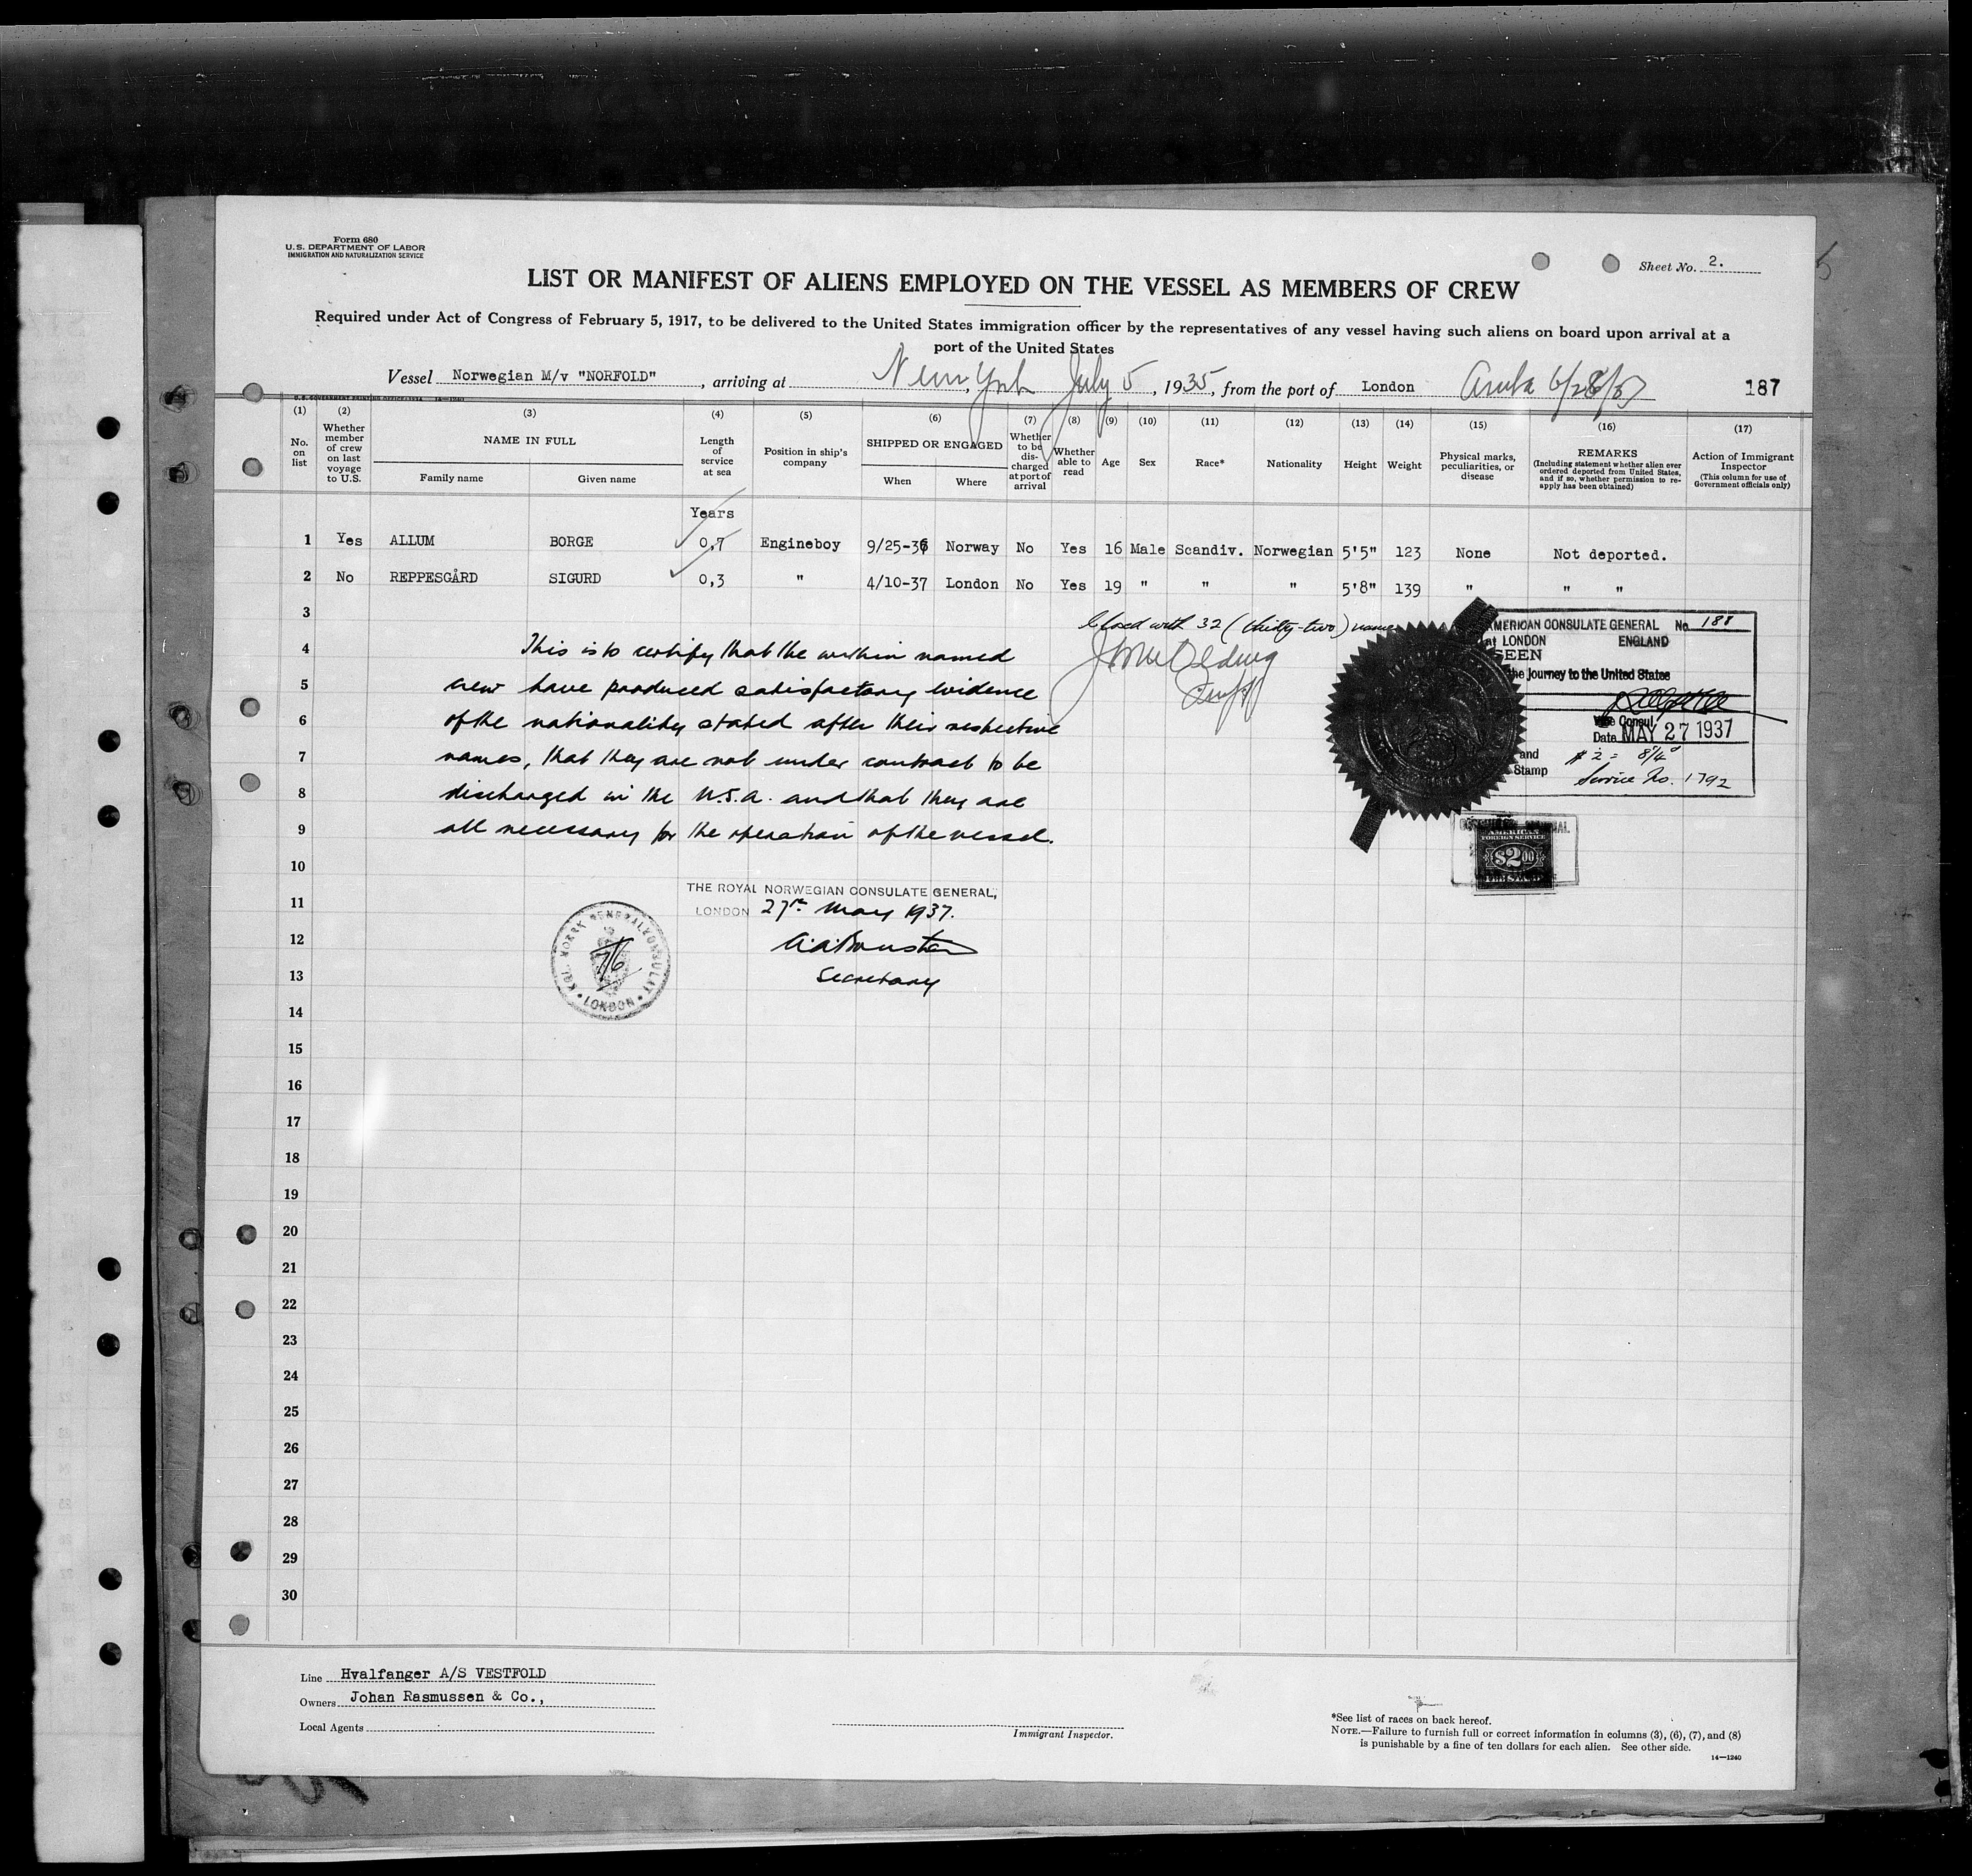 Form 680
U. S. DEPARTMENT OF LABOR
IMMIGRATION AND NATURALIZATION SERVICE
Sheet No. 2.
LIST OR MANIFEST OF ALIENS EMPLOYED ON THE VESSEL AS MEMBERS OF CREW
Required under Act of Congress of February 5, 1917, to be delivered to the United States immigration officer by the representatives of any vessel having such aliens on board upon arrival at a
port of the United States
Vessel Norwegian M/v "NORFOLD", arriving at New York July 5, 1935, from the port of London Aruba 6/28/37 187
(1) (2) (3) (4) (5) (6) (7) (8) (9) (10) (11) (12) (13) (14) (15) (16) (17)
No. on list
Whether member of crew on last voyage to U.S.
NAME IN FULL
Family name
Given name
Length of service at sea
Position in ship's company
SHIPPED OR ENGAGED
When
Where
Whether to be discharged at port of arrival
Whether able to read
Age
Sex
Race*
Nationality
Height
Weight
Physical marks, peculiarities, or disease
REMARKS
(Including statement whether alien ever ordered deported from United States, and if so, whether permission to re-apply has been obtained)
Action of Immigrant Inspector
(This column for use of Government officials only)
Years
1 Yes ALLUM BORGE 0,7 Engineboy 9/25-36 Norway No Yes 16 Male Scandiv. Norwegian 5'5" 123 None Not deported.
2 No REPPESGÅRD SIGURD 0,3 " 4/10-37 London No Yes 19 " " " 5'8" 139 " " "
3
Closed with 32 (thirty-two) names
4 This is to certify that the within named
5 crew have produced satisfactory evidence
6 of the nationality stated after their respective
7 names, that they are not under contract to be
8 discharged in the U.S.A. and that they are
9 all necessary for the operation of the vessel.
AMERICAN CONSULATE GENERAL No. 188
at LONDON ENGLAND
SEEN
the journey to the United States
Vice Consul
Date MAY 27 1937
and $2 = 8/4d
Stamp Service No. 1792
AMERICAN
FOREIGN SERVICE
$2.00
FEE STAMP
10
THE ROYAL NORWEGIAN CONSULATE GENERAL,
11 LONDON 27th May 1937.
12
Secretary
KGL. NORSK GENERALKONSULAT
LONDON
7/6
13
14
15
16
17
18
19
20
21
22
23
24
25
26
27
28
29
30
Line Hvalfanger A/S VESTFOLD
Owners Johan Rasmussen & Co.,
Local Agents
Immigrant Inspector.
*See list of races on back hereof.
NOTE.—Failure to furnish full or correct information in columns (3), (6), (7), and (8)
is punishable by a fine of ten dollars for each alien. See other side.
14—1240